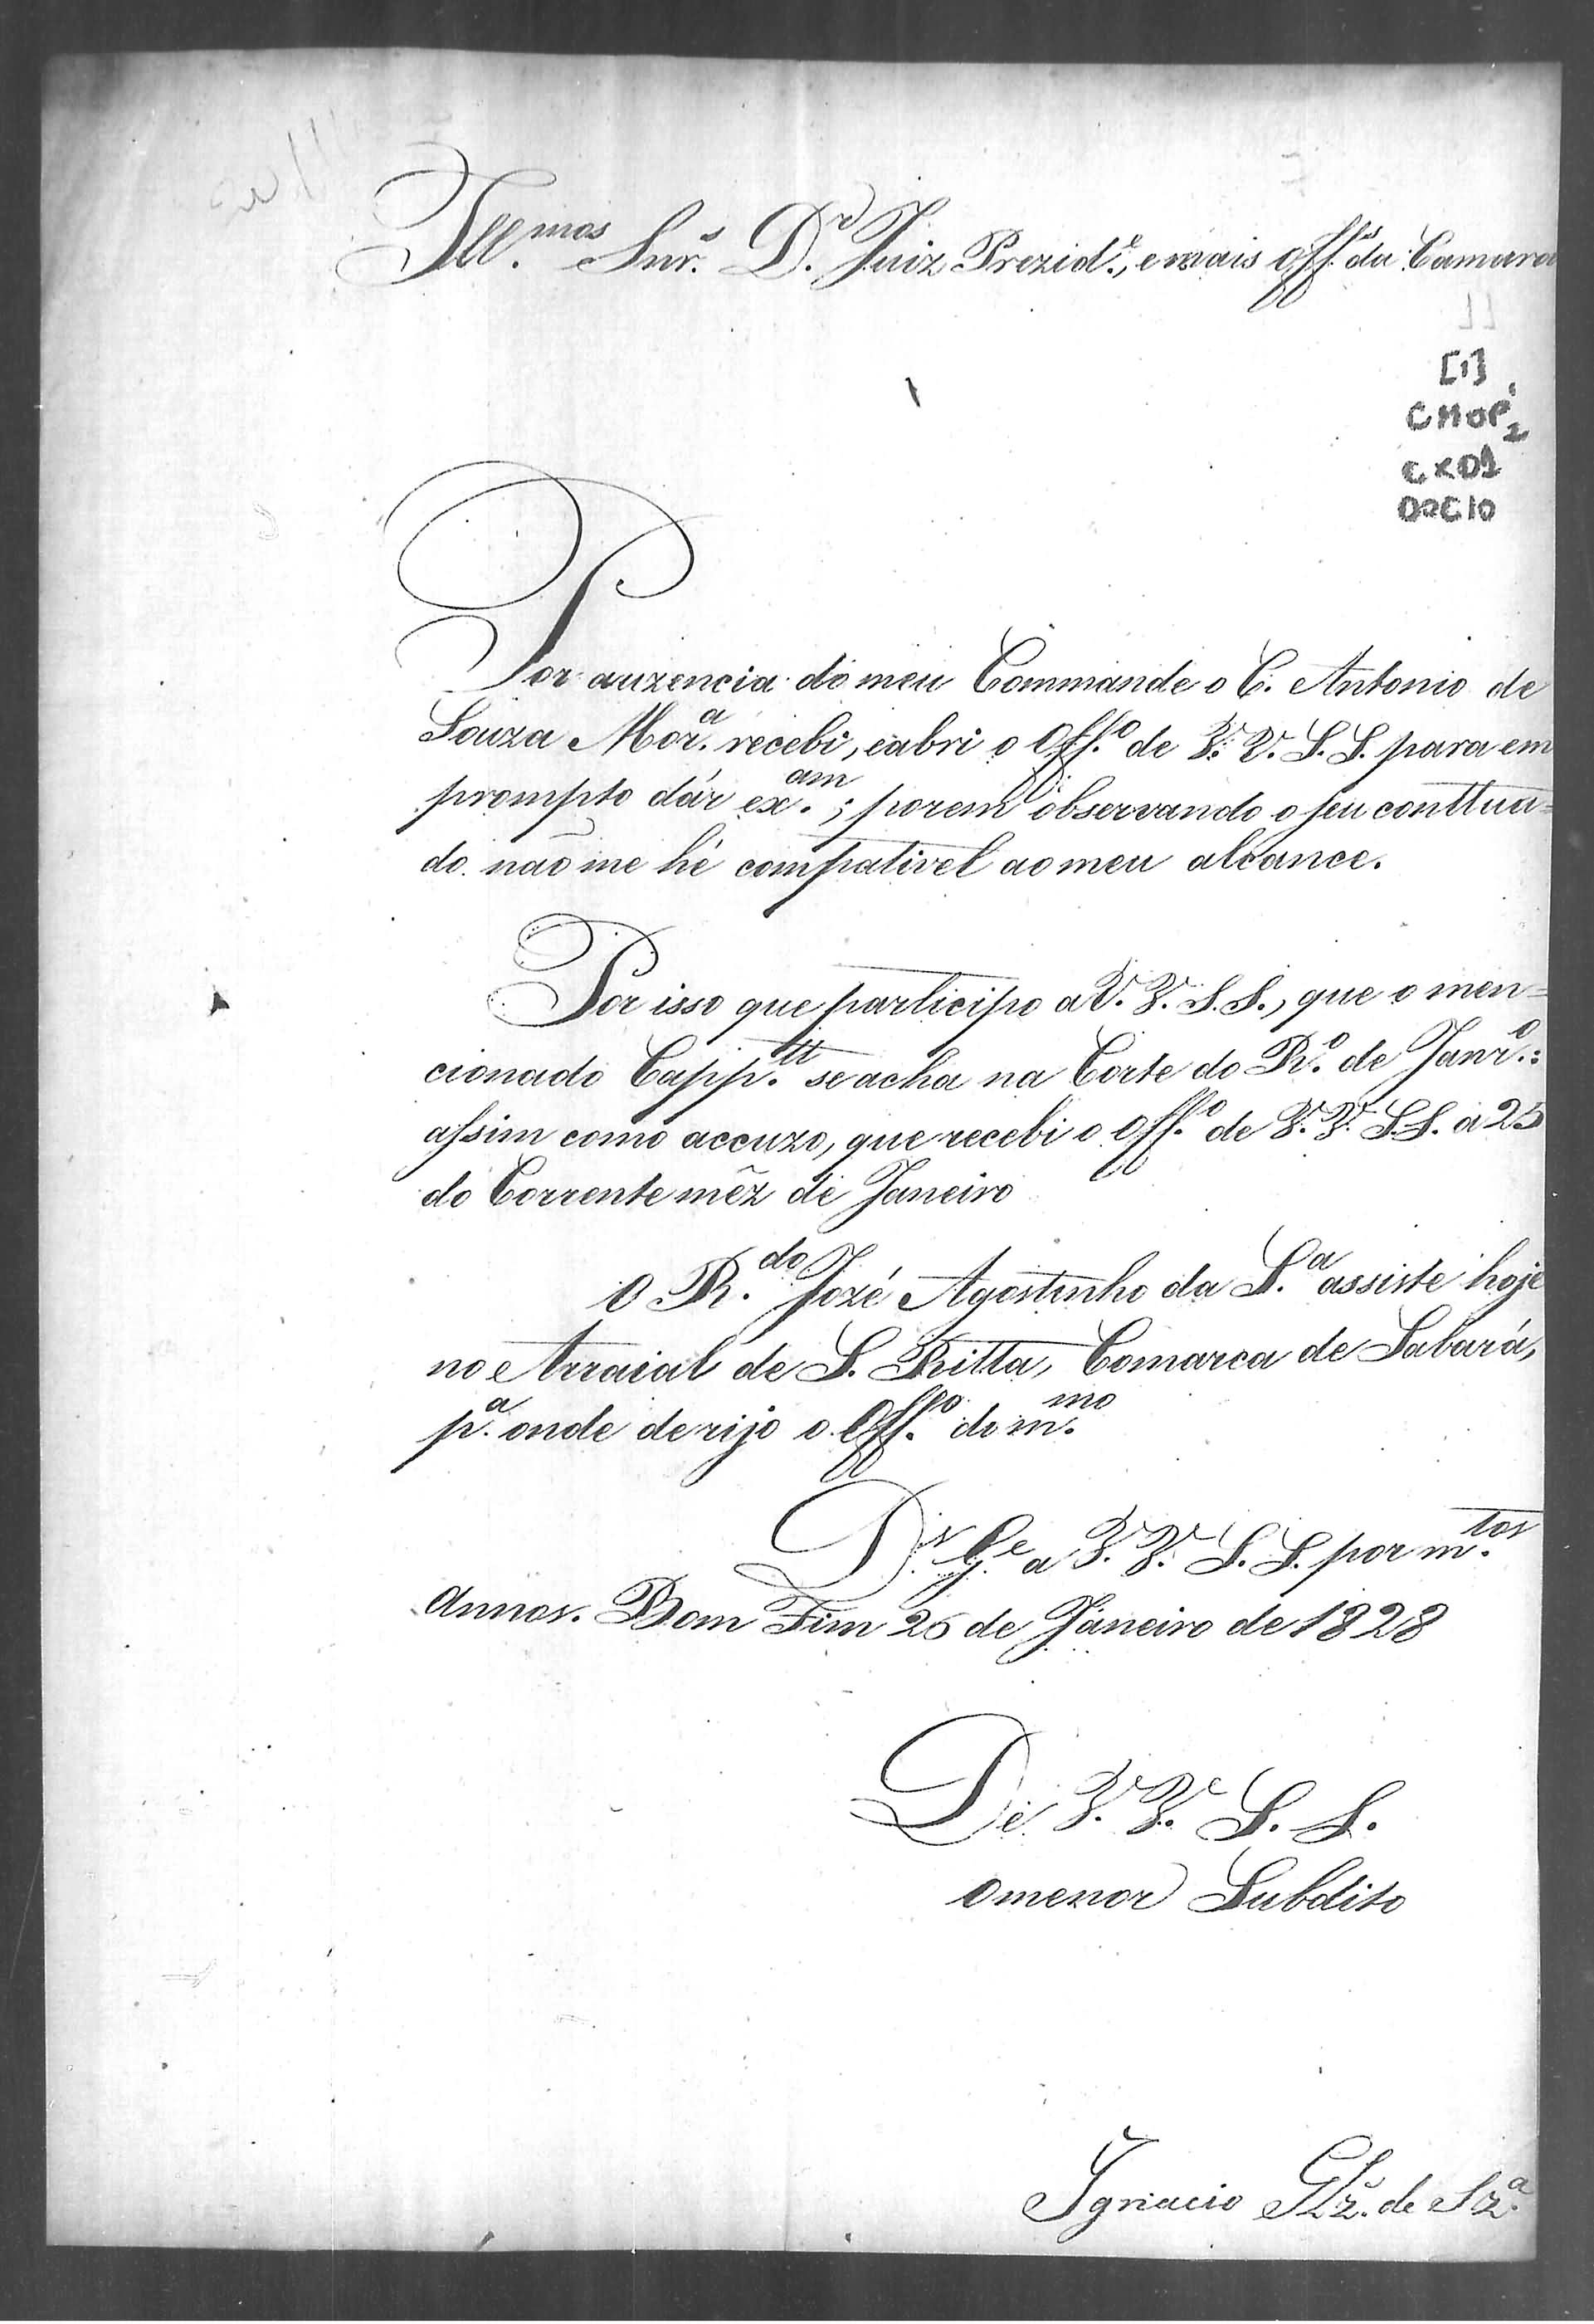 Ill.mos Snr.s D.r Juiz Prezid.e, e mais Off.s da Camara
[1]
CMOP
2
CX01
DOC10
Por auzencia do meu Commande o C. Antonio de
Souza Mor.a recebi, e abri o Off.o de V. V. S. S. para em
prompto dár ex.am; porem observando o seu conttua=
do não me hé compativel ao meu alcance.
Por isso que participo a V. V. S. S., que o men=
cionado Capp.tt se acha na Corte do R.o de Janr.o:
assim como accuzo, que recebi o Off.o de V. V. S. S. a 25
do Corrente mêz de Janeiro
O R.do Jozé Agostinho da S.a assiste hoje
no Arraial de S. Ritta, Comarca de Sabará,
p.a onde derijo o Off.o do m.mo
D.s G.e a V. V. S. S. por m.tos
Annos. Bom Fim 26 de Janeiro de 1828
De V. V. S. S.
O menor Subdito
Ignacio Glz. de Sz.a